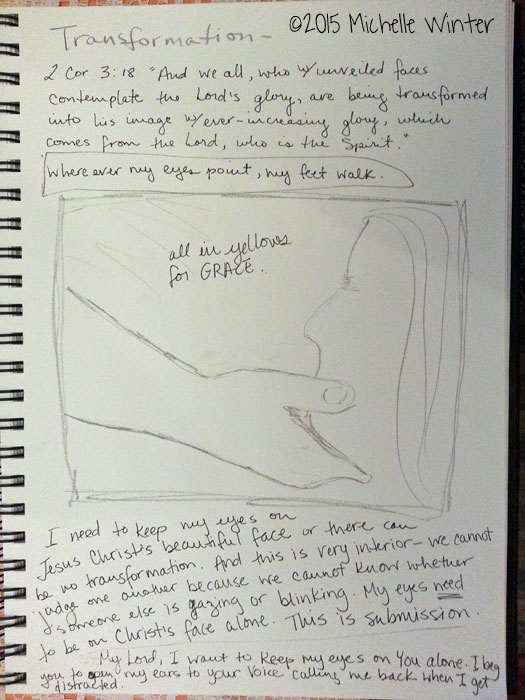 ©2015 Michelle Winter
Transformation -
2 Cor 3:18 "And we all, who w/unveiled faces
contemplate the Lord's glory, are being transformed
into his image w/ever-increasing glory, which
comes from the Lord, who is the Spirit."
Where ever my eyes point, my feet walk.
all in yellows
for GRACE.
I need to keep my eyes on
Jesus Christ's beautiful face or there can
be no transformation. And this is very interior - we cannot
judge one another because we cannot know whether
someone else is gazing or blinking. My eyes need
to be on Christ's face alone. This is submission.
My Lord, I want to keep my eyes on You alone. I beg
you to open my ears to your Voice calling me back when I get
distracted.